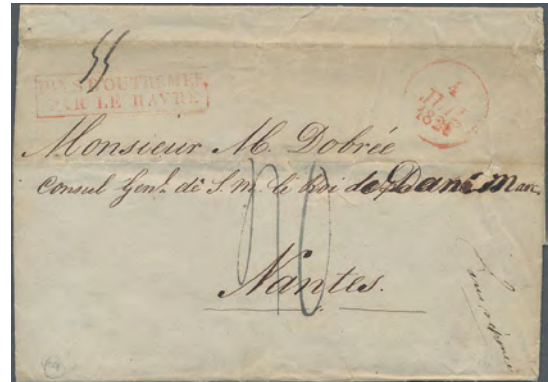 PAYS D'OUTREMER
PAR LE HAVRE
4
1828
Monsieur M. Dobrée
Consul Genl. de S. M. le Roi de Danemarc
Nantes.